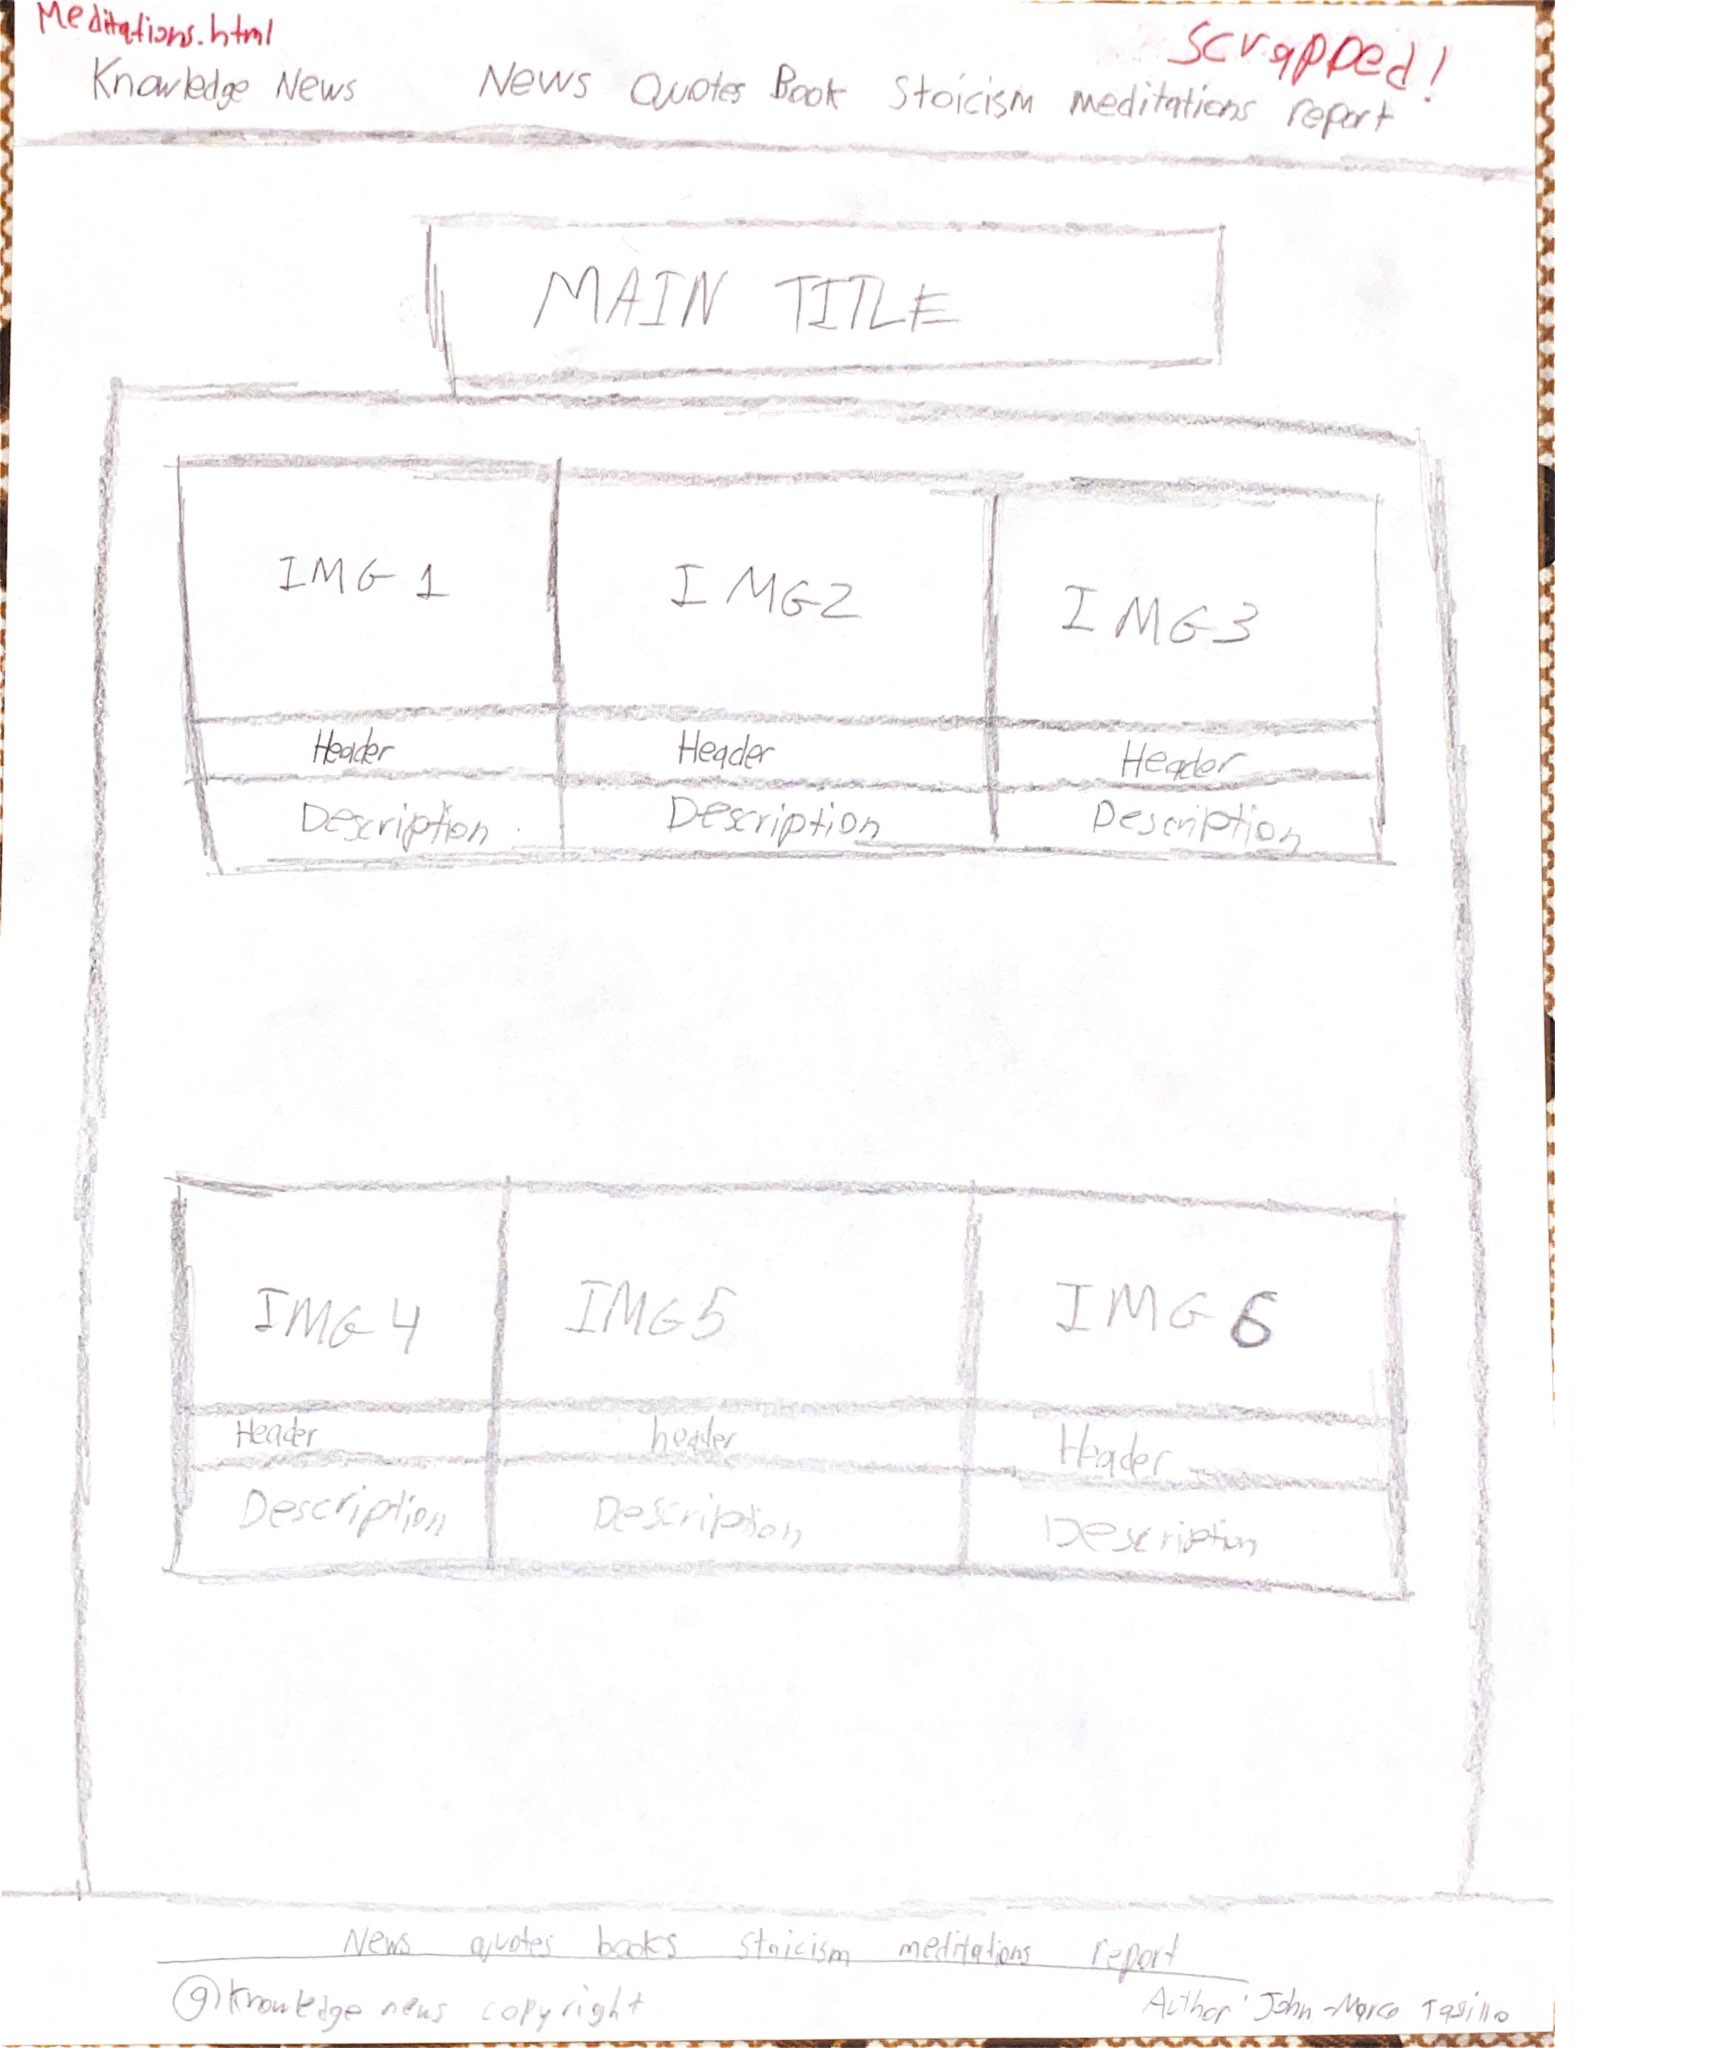 Meditations.html
Scrapped!
Knowledge News News Quotes Book Stoicism meditations report
MAIN TITLE
IMG 1 IMG2 IMG3
Header Header Header
Description Description Description
IMG 4 IMG5 IMG 6
Header header Header
Description Description Description
News quotes books stoicism meditations report
Knowledge news copyright Author: John-Marco